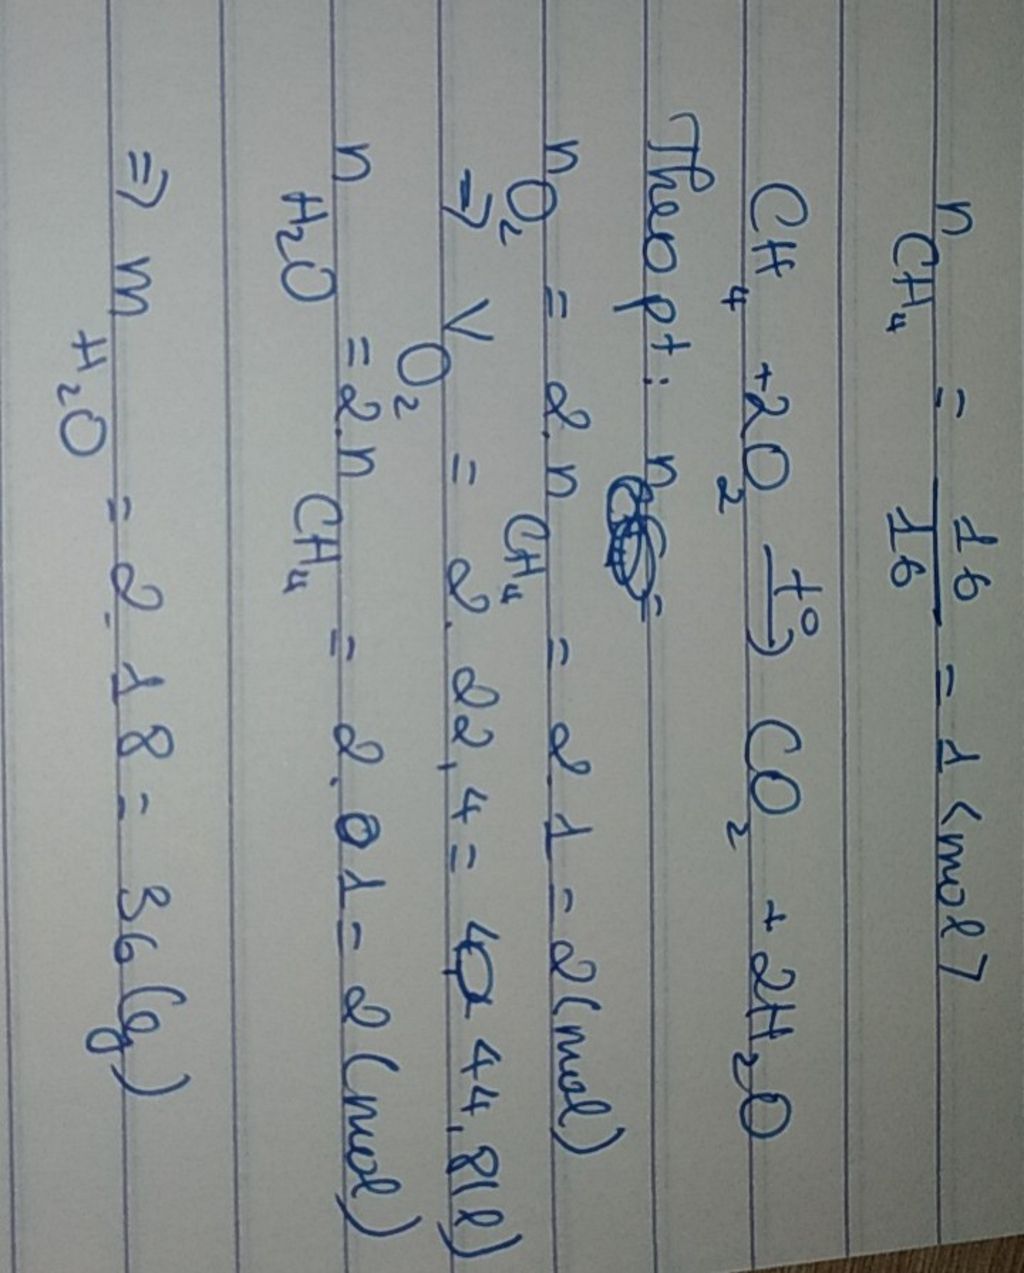 n CH₄ = 16/16 = 1 <mol>
CH₄ + 2O₂ t° → CO₂ + 2H₂O
Theo pt: n
n O₂ = 2.n CH₄ = 2.1 = 2 (mol)
=> V O₂ = 2.22,4 = 44,8 (l)
n H₂O = 2.n CH₄ = 2.01 = 2 (mol)
=> m H₂O = 2.18 = 36 (g)